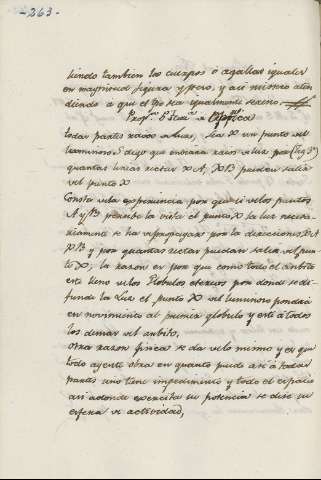 -263-
siendo tambien los cuerpos o agallas iguales
en magnitud figura y peso, y asi mismo aten
diendo a que el tpo sea igualmente sereno.
Prop.
todas partes rayos de luz, sea X un punto del
luminoso S digo que enviara rayos de luz por (fig 3ª)
quantas lineas rectas X A, X B puedan salir
del punto X
Consta de la experiencia por que si de los puntos
A y B percibe la vista el punto X la luz necesa-
riamente se ha de propagar por la direcciones X A
X B y por quantas rectas puedan salir del pun
to X; la razon es por que como todo el ambito
este lleno de los Globulos etereos por donde se di-
funde la Luz el punto X del luminoso pondrá
en movimiento al primer globulo y este á todos
los demas del ambito,
otra razon fisica se da de lo mismo y es que
todo agente obra en quanto puede asi á todas
partes sino tiene impedimento y todo el espacio
asi adonde exercita su potencia se dice su
esfera de actividad,